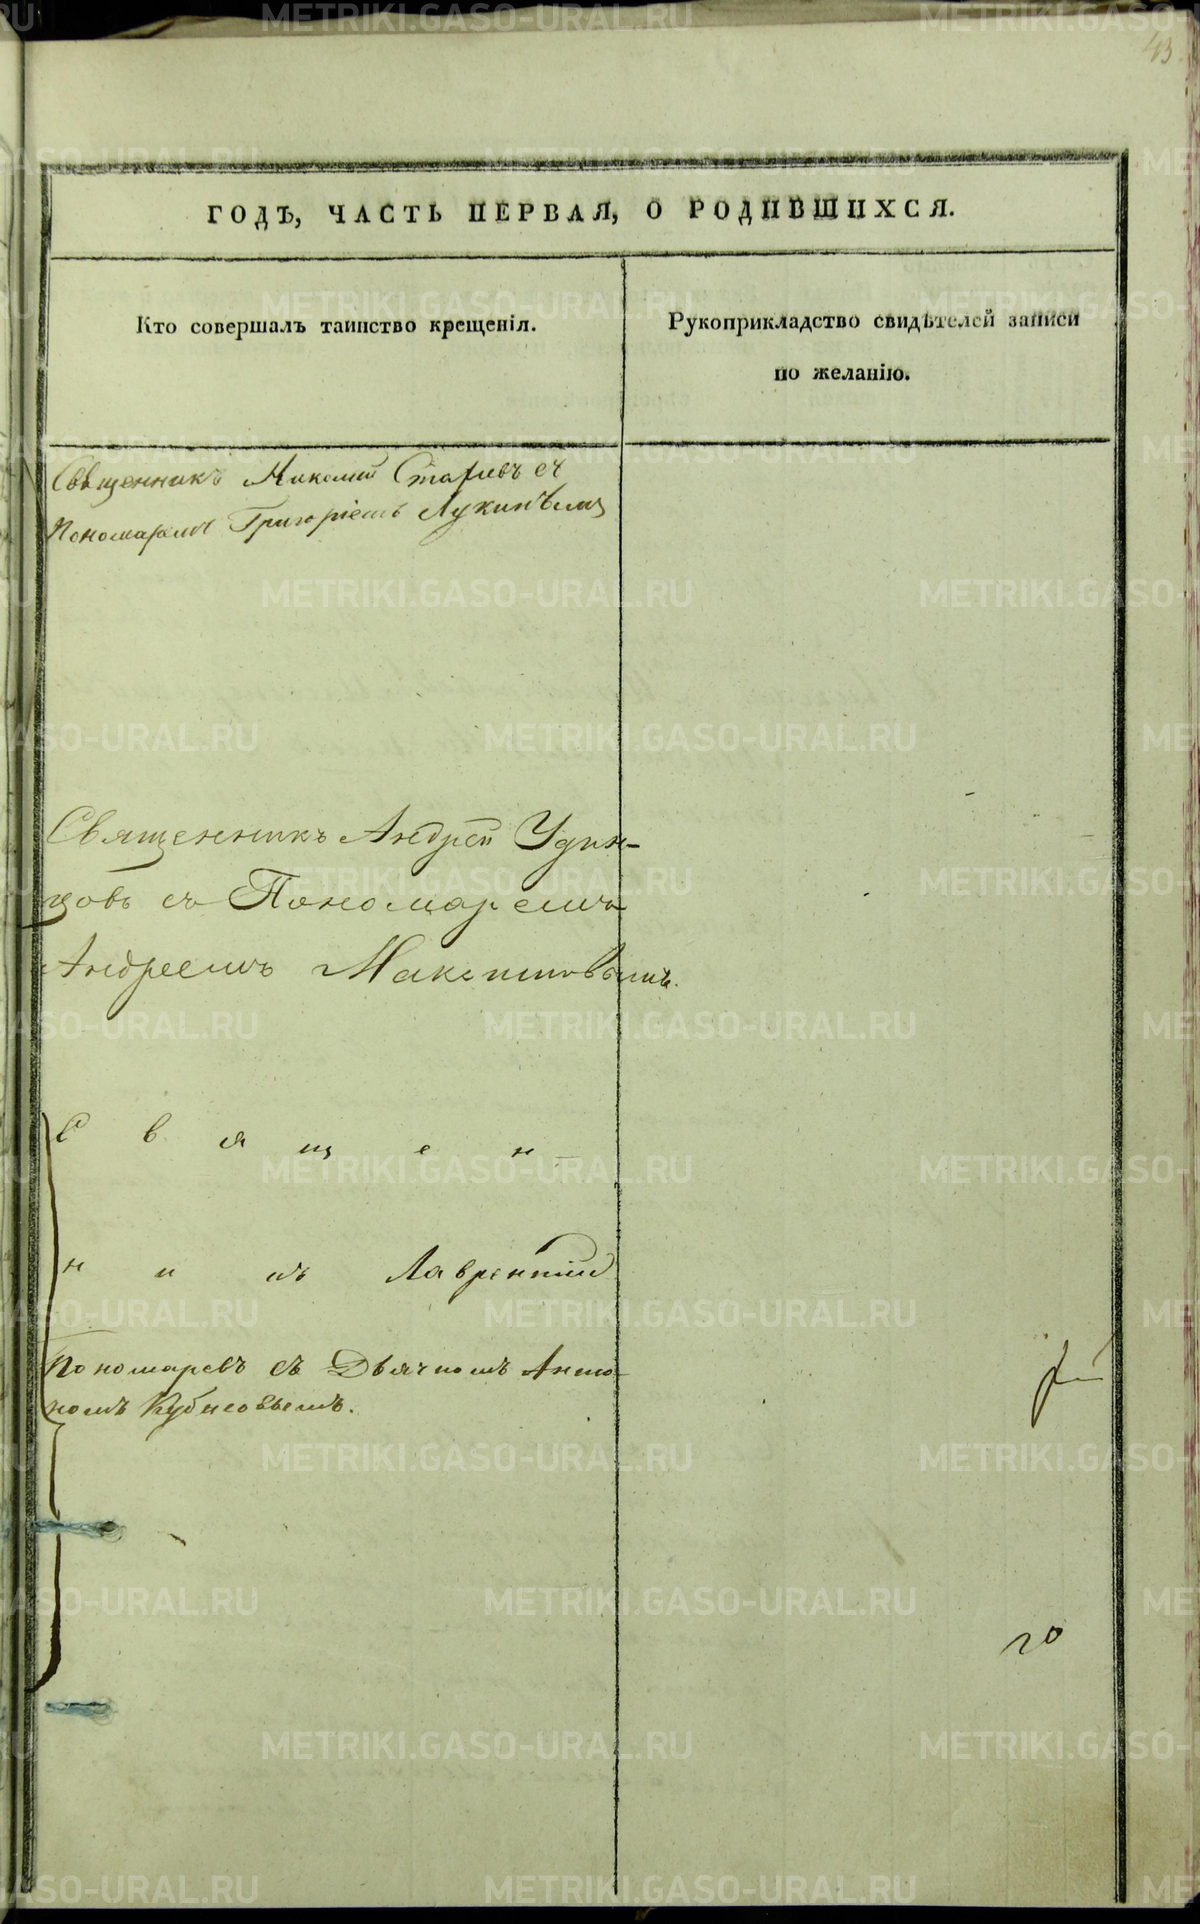 43
ГОДЪ, ЧАСТЬ ПЕРВАЯ, О РОДИВШИХСЯ.
Кто совершалъ таинство крещенія.
Рукоприкладство свидѣтелей записи
по желанію.
Священникъ Николай съ
Пономаремъ Григоріемъ
Священникъ Андрей Удин-
цовъ съ Пономаремъ
Андреемъ Максимовымъ.
С в я щ е н
н и къ Лаврентій
Пономаревъ съ Дьячкомъ Анто-
номъ
го
METRIKI.GASO-URAL.RU